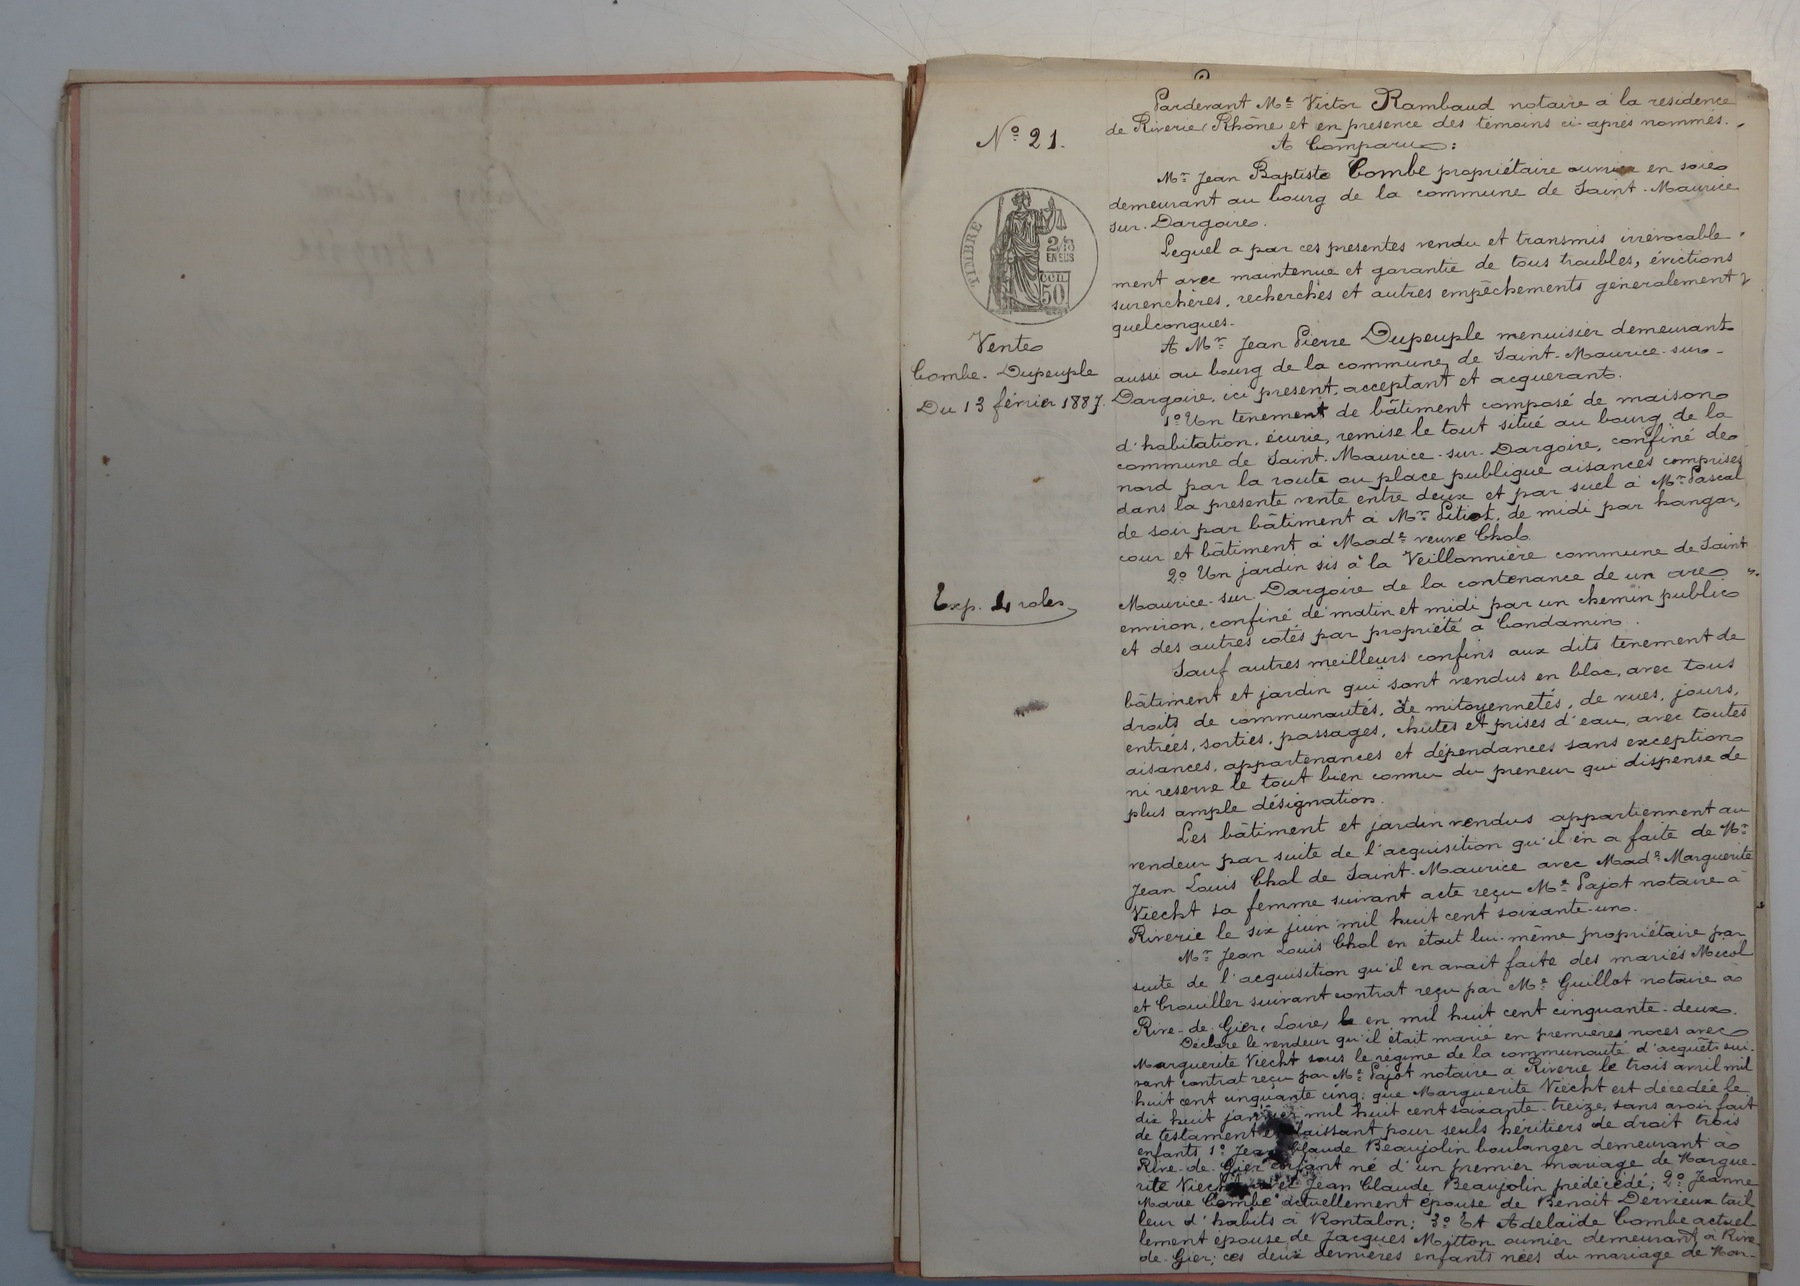 Nº 21.
TIMBRE
2/10
EN SUS
CEN
50
Vente
Combe-Dupeuple
Du 13 février 1887.
Exp. 4 roles
Pardevant Me Victor Rambaud notaire à la résidence
de Riverie (Rhône) et en présence des témoins ci-après nommés.
A Comparu:
Mr Jean Baptiste Combe propriétaire ouvrier en soie
demeurant au bourg de la commune de Saint-Maurice
sur-Dargoire.
Lequel a par ces présentes vendu et transmis irrévocable-
ment avec maintenue et garantie de tous troubles, évictions
surenchères, recherches et autres empêchements généralement
quelconques.
A Mr Jean Pierre Dupeuple menuisier demeurant
aussi au bourg de la commune de Saint-Maurice-sur-
Dargoire, ici présent, acceptant et acquerant.
1º Un tenement de bâtiment composé de maison
d'habitation, écurie, remise le tout situé au bourg de la
commune de Saint-Maurice-sur-Dargoire, confiné de
nord par la route ou place publique aisances comprises
dans la présente vente entre deux et par suel à Mr Pascal
de soir par bâtiment à Mr Pitiot, de midi par hangar,
cour et bâtiment à Made veuve Chol
2º Un jardin sis à la Veillonnière commune de Saint
Maurice-sur-Dargoire de la contenance de un are
environ, confiné de matin et midi par un chemin public
et des autres cotés par propriété à Condamin.
Sauf autres meilleurs confins aux dits tenement de
bâtiment et jardin qui sont vendus en bloc, avec tous
droits de communautés, de mitoyennetés, de vues, jours,
entrées, sorties, passages, chutes et prises d'eau, avec toutes
aisances, appartenances et dépendances sans exception
ni reserve le tout bien connu du preneur qui dispense de
plus ample désignation.
Les bâtiment et jardin vendus appartiennent au
vendeur par suite de l'acquisition qu'il en a faite de Mr
Jean Louis Chol de Saint-Maurice avec Made Marguerite
Viecht sa femme suivant acte reçu Me Pajot notaire à
Riverie le six juin mil huit cent soixante-un.
Mr Jean Louis Chol en était lui-même propriétaire par
suite de l'acquisition qu'il en avait faite des mariés Micol
et Crouiller suivant contrat reçu par Me Guillot notaire à
Rive-de-Gier, Loire, en mil huit cent cinquante-deux.
Déclare le vendeur qu'il était marié en premières noces avec
Marguerite Viecht sous le régime de la communauté d'acquêts sui-
vant contrat reçu par Me Pajot notaire à Riverie le trois avril mil
huit cent cinquante cinq; que Marguerite Viecht est décédée le
dix huit janvier mil huit cent soixante-treize, sans avoir fait
de testament laissant pour seuls héritiers de droit trois
enfants 1º Jean Claude Beaujolin boulanger demeurant à
Rive-de-Gier enfant né d'un premier mariage de Margue-
rite Viecht avec Jean Claude Beaujolin prédécédé; 2º Jeanne
Marie Combe actuellement épouse de Benoit Dervieux tail
leur d'habits à Rontalon; 3º Et Adelaïde Combe actuel-
lement épouse de Jacques Mitton ouvrier demeurant à Rive-
de-Gier; ces deux dernières enfants nées du mariage de Mar-